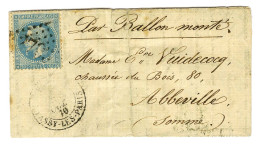 Par Ballon monté.
Madame Edne Vuidecocq
chaussée du Bois, 80,
Abbeville
(Somme)
70
PASSY-LES-PARIS